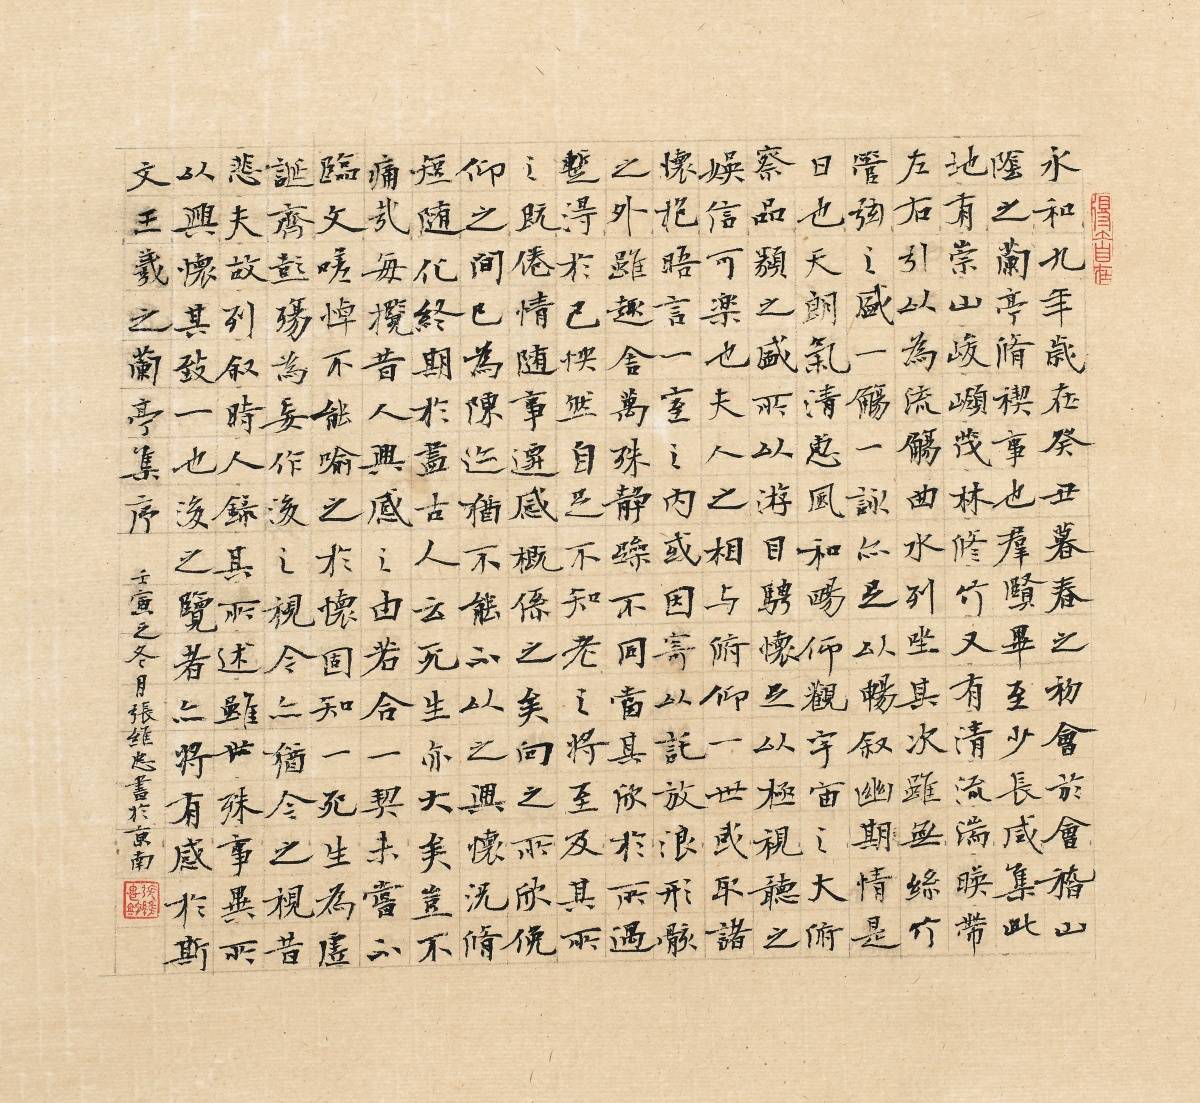 得大自在
永和九年歲在癸丑暮春之初會於會稽山
陰之蘭亭脩禊事也羣賢畢至少長咸集此
地有崇山峻嶺茂林修竹又有清流湍暎帶
左右引以為流觴曲水列坐其次雖無絲竹
管弦之盛一觴一詠亦足以暢叙幽期情是
日也天朗氣清惠風和暢仰觀宇宙之大俯
察品類之盛所以游目騁懷足以極視聽之
娛信可樂也夫人之相与俯仰一世或取諸
懷抱晤言一室之內或因寄以託放浪形骸
之外雖趣舍萬殊静躁不同當其欣於所遇
暫得於己怏然自足不知老之將至及其所
之既倦情随事遷感概係之矣向之所欣俛
仰之間已為陳迹猶不能不以之興懷況脩
短随化終期於盡古人云死生亦大矣豈不
痛哉每攬昔人興感之由若合一契未嘗不
臨文嗟悼不能喻之於懷固知一死生為虛
誕齊彭殤為妄作後之視今亦猶今之視昔
悲夫故列叙時人錄其所述雖世殊事異所
以興懷其致一也後之覽者亦將有感於斯
文王羲之蘭亭集序 壬寅之冬月張維忠書於京南